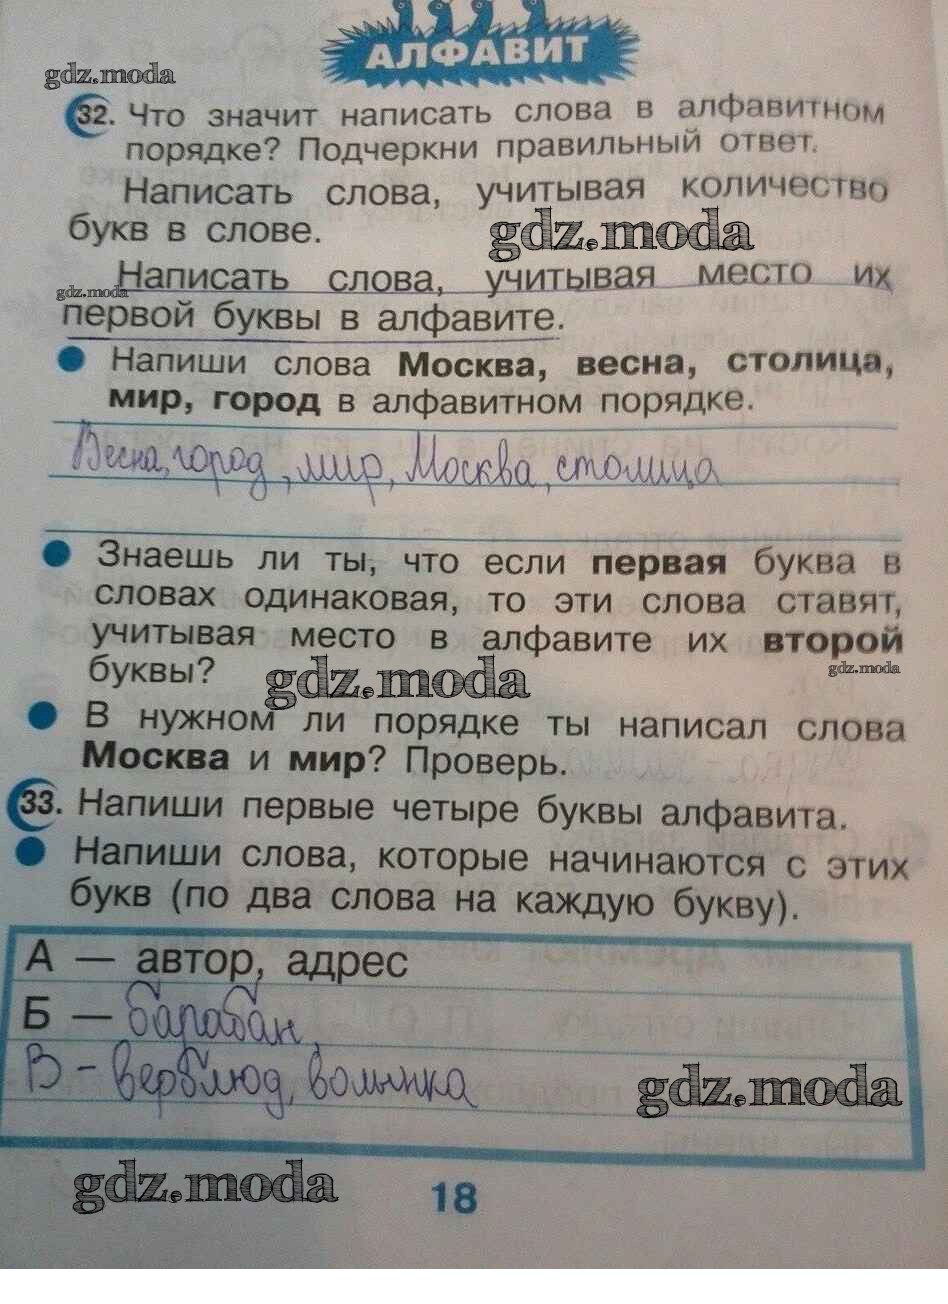 АЛФАВИТ
gdz.moda
32. Что значит написать слова в алфавитном
порядке? Подчеркни правильный ответ.
Написать слова, учитывая количество
букв в слове.
gdz.moda
Написать слова, учитывая место их
gdz.moda
первой буквы в алфавите.
Напиши слова Москва, весна, столица,
мир, город в алфавитном порядке.
Весна, город, мир, Москва, столица
Знаешь ли ты, что если первая буква в
словах одинаковая, то эти слова ставят,
учитывая место в алфавите их второй
буквы?
gdz.moda
gdz.moda
В нужном ли порядке ты написал слова
Москва и мир? Проверь.
33. Напиши первые четыре буквы алфавита.
Напиши слова, которые начинаются с этих
букв (по два слова на каждую букву).
А — автор, адрес
Б — барабан,
В - верблюд, волынка
gdz.moda
gdz.moda
18